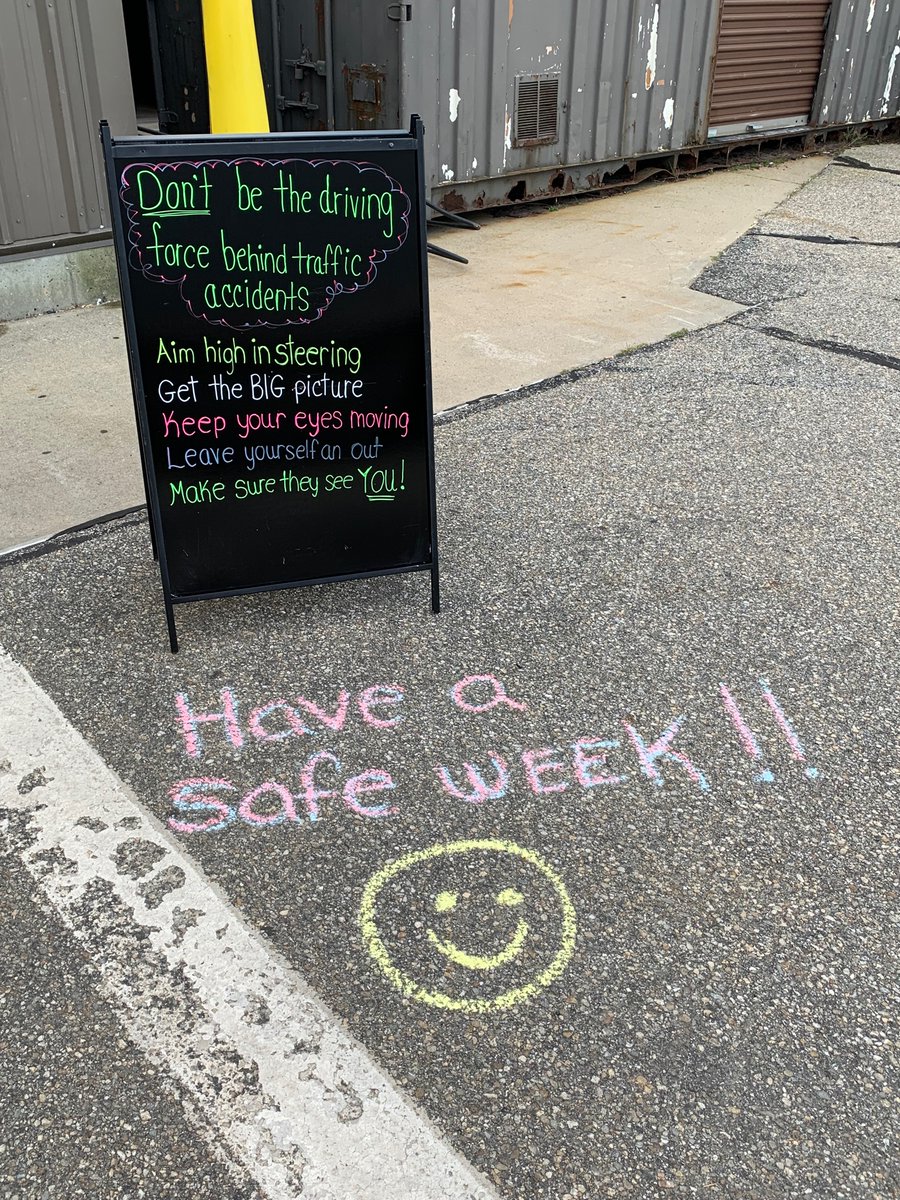 Don't be the driving
force behind traffic
accidents
Aim high in steering
Get the BIG picture
Keep your eyes moving
Leave yourself an out
Make sure they see YOU!
Have a
safe week!!